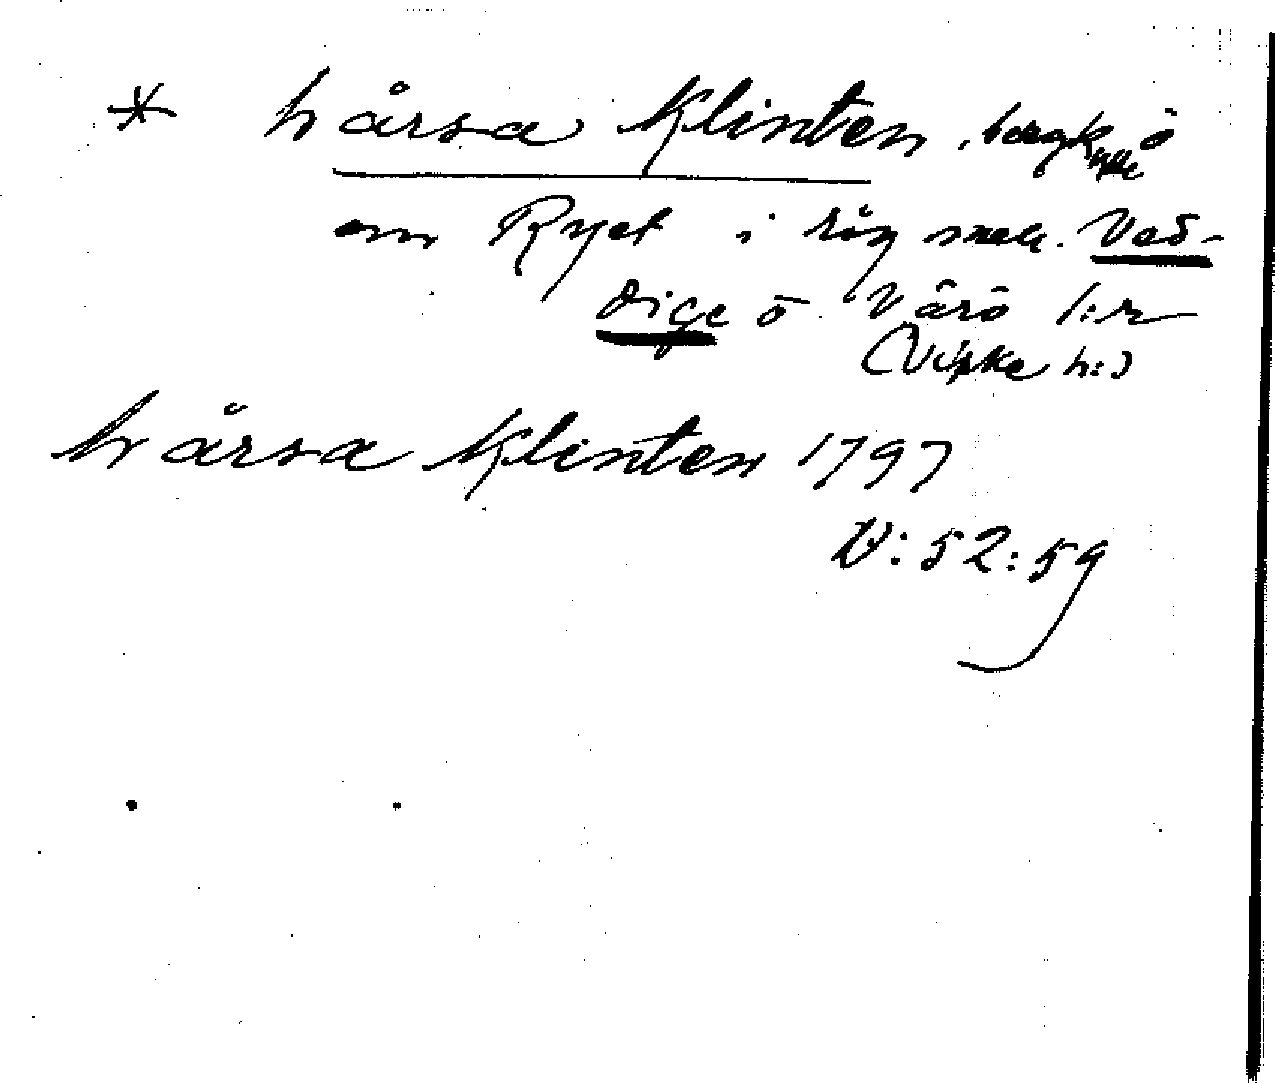 * hårsa Klinten, bergkulle ö
om Ryet i råg mell. Ved-
dige o Värö s:r
(Viske h:)
hårsa Klinten 1797
V:52:59